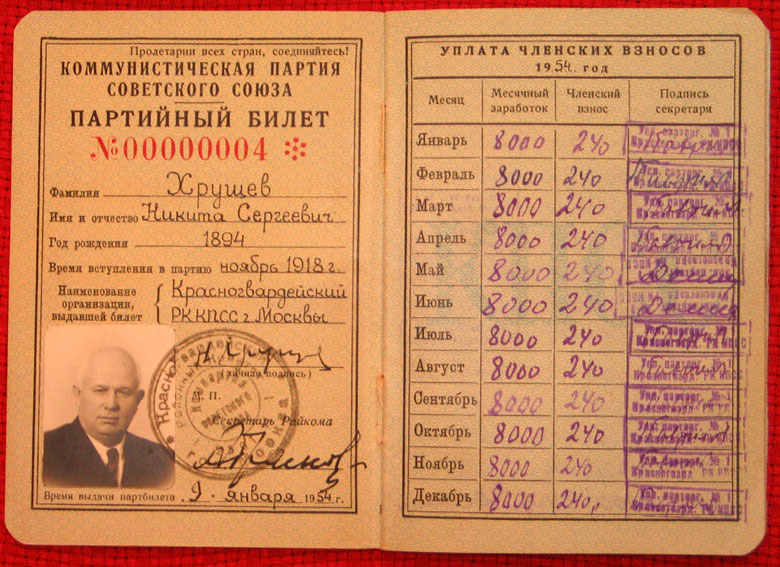 Пролетарии всех стран, соединяйтесь!
КОММУНИСТИЧЕСКАЯ ПАРТИЯ
СОВЕТСКОГО СОЮЗА
ПАРТИЙНЫЙ БИЛЕТ
№ 00000004
Фамилия Хрущев
Имя и отчество Никита Сергеевич
Год рождения 1894
Время вступления в партию ноябрь 1918 г.
Наименование организации, выдавшей билет
Красногвардейский
РК КПСС г. Москвы
(личная подпись)
М. П.
Секретарь Райкома
Время выдачи партбилета 9 января 1954 г.
УПЛАТА ЧЛЕНСКИХ ВЗНОСОВ
1954. год
Месяц Месячный заработок Членский взнос Подпись секретаря
Январь 8000 240
Февраль 8000 240
Март 8000 240
Апрель 8000 240
Май 8000 240
Июнь 8000 240
Июль 8000 240
Август 8000 240
Сентябрь 8000 240
Октябрь 8000 240
Ноябрь 8000 240
Декабрь 8000 240